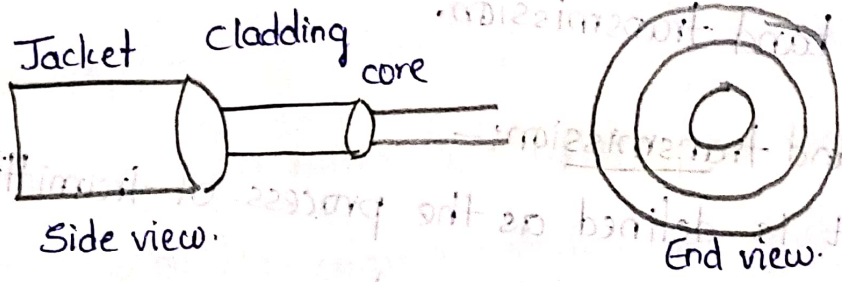 Jacket
Cladding
core
Side view.
End view.